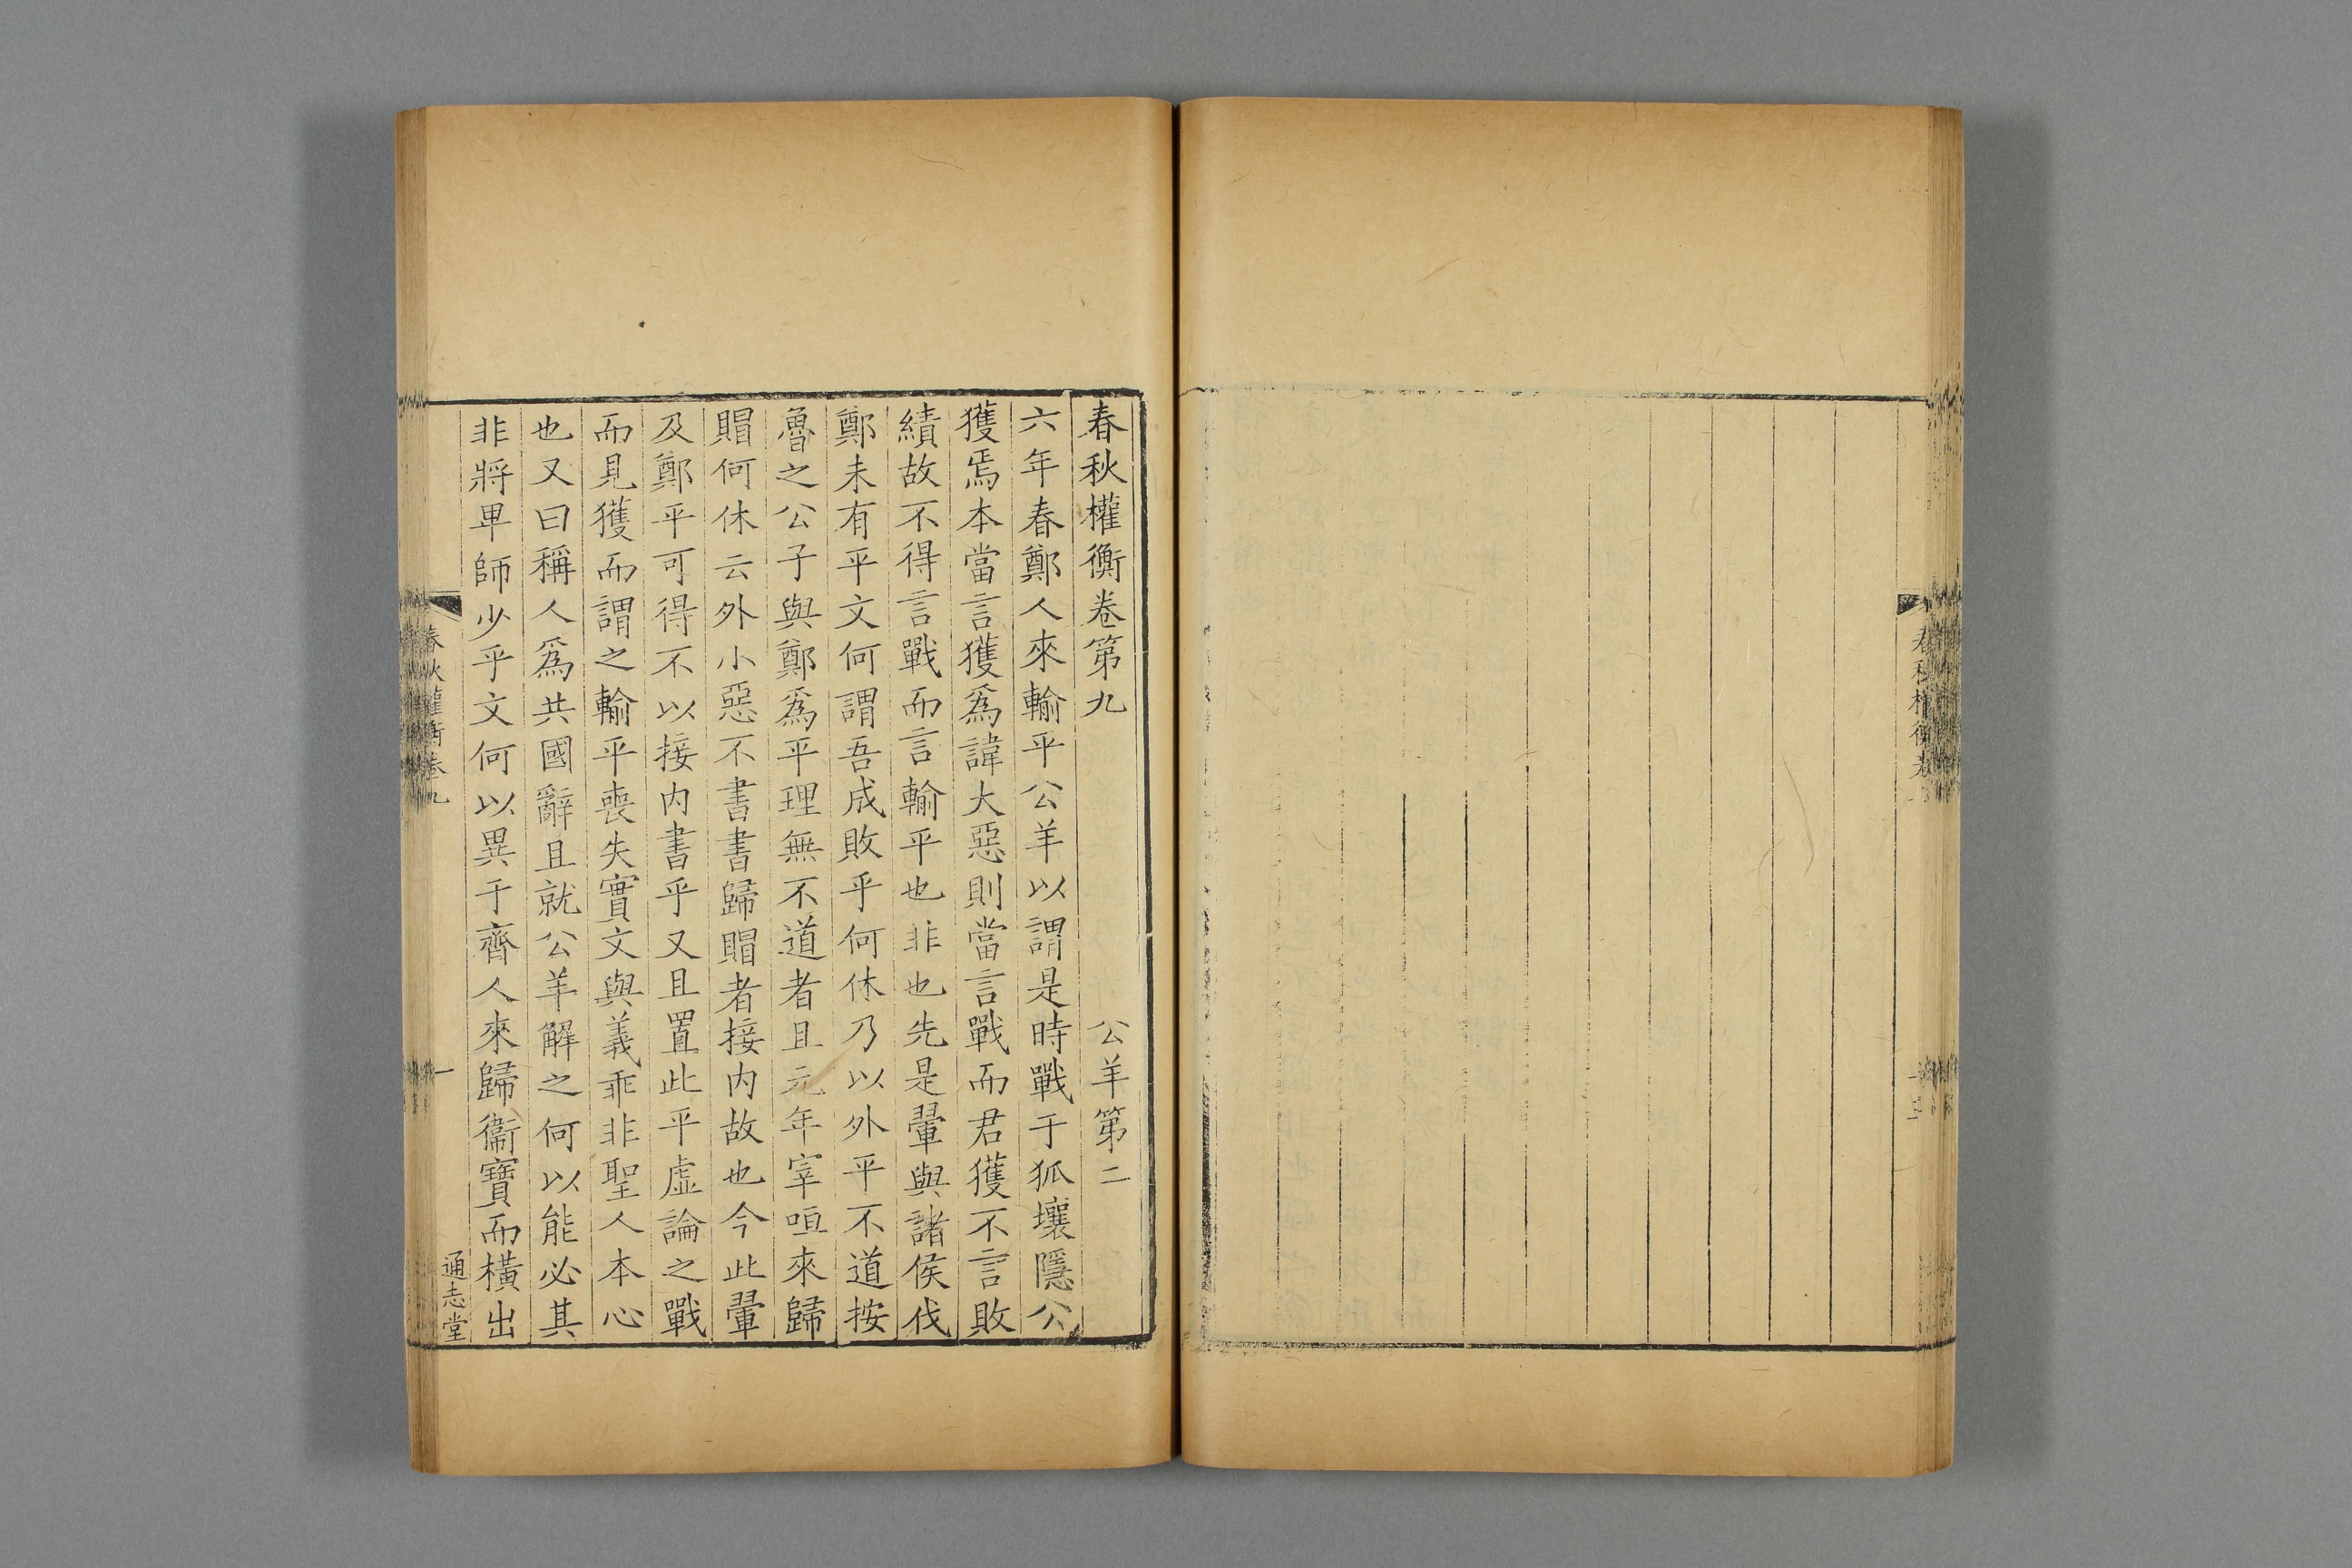 春秋權衡卷第九　公羊第二
六年春鄭人來輸平公羊以謂是時戰于狐壤隱公
獲焉本當言獲爲諱大惡則當言戰而君獲不言敗
績故不得言戰而言輸平也非也先是翬與諸侯伐
鄭未有平文何謂吾成敗乎何休乃以外平不道按
魯之公子與鄭爲平理無不道者且元年宰咺來歸
賵何休云外小惡不書書歸賵者接内故也今此翬
及鄭平可得不以接内書乎又且置此平虛論之戰
而見獲而謂之輸平喪失實文與義乖非聖人本心
也又曰稱人爲共國辭且就公羊解之何以能必其
非將卑師少乎文何以異于齊人來歸衞寶而橫出
春秋權衡卷九
一
通志堂
春秋權衡卷